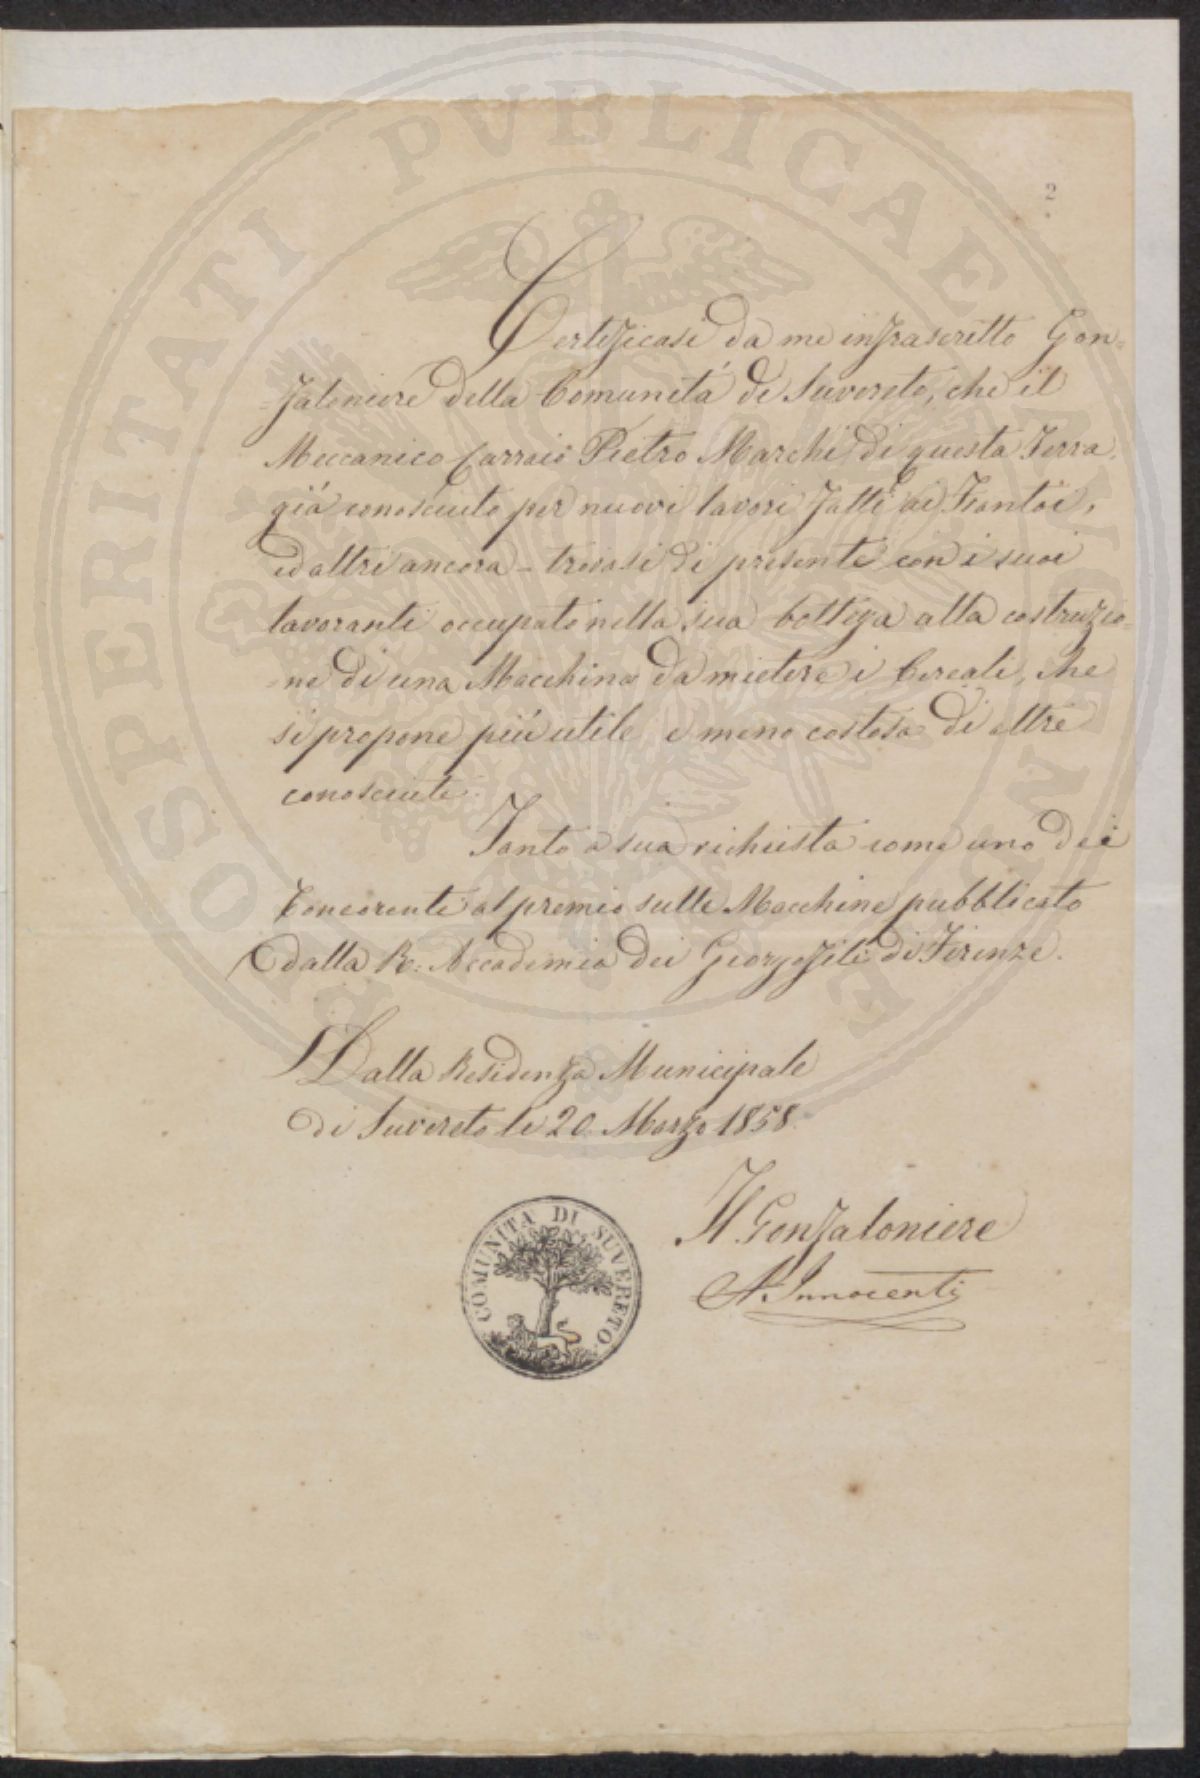 2
Certificasi da me infrascritto Gon=
=faloniere della Comunità di Suvereto, che il
Meccanico Carraio Pietro Marchi di questa Terra,
già conosciuto per nuovi lavori fatti ai Frantoi,
ed altri ancora - trovasi di presente con i suoi
lavoranti occupato nella sua bottega alla costruzio=
=ne di una Macchina da mietere i Cereali, che
si propone più utile e meno costosa di altre
conosciute.
Tanto a sua richiesta come uno dei
Concorenti al premio sulle Macchine pubblicato
dalla R: Accademia dei Georgofili di Firenze.
Dalla Residenza Municipale
di Suvereto li 20 Marzo 1858.
Il Gonfaloniere
A. Innocenti
COMUNITA DI SUVERETO
PROSPERITATI PVBLICAE AVGENDAE